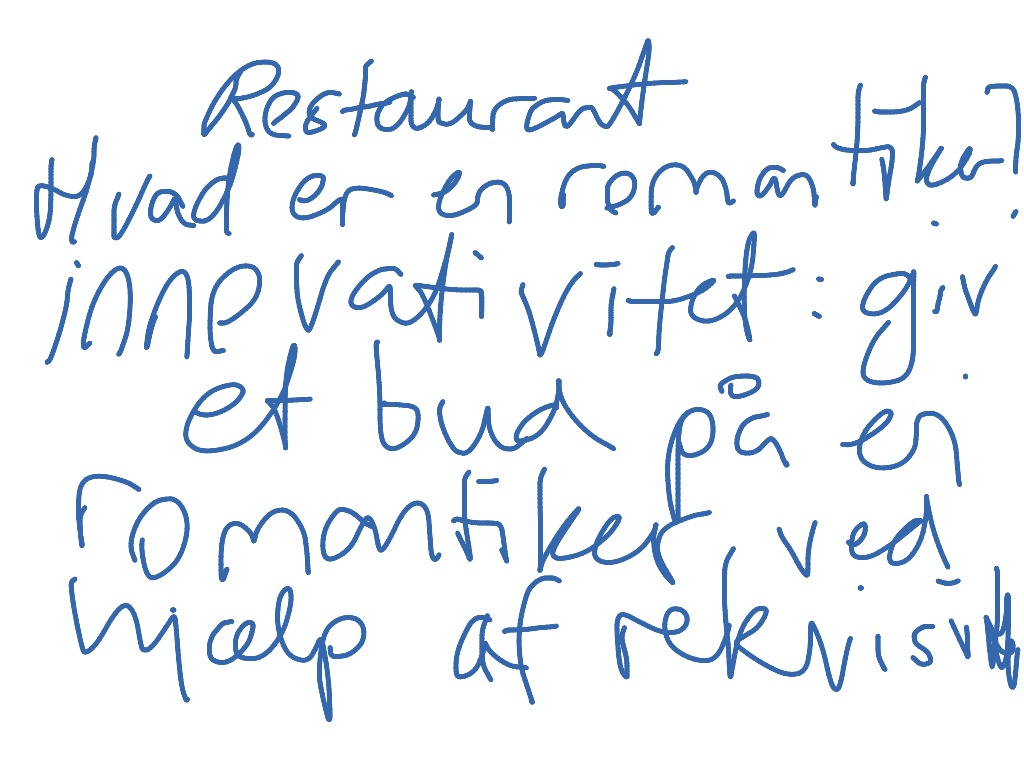 Restaurant
Hvad er en romantiker?
innovativitet: giv
et bud på en
romantiker ved
hjælp af rekvisit